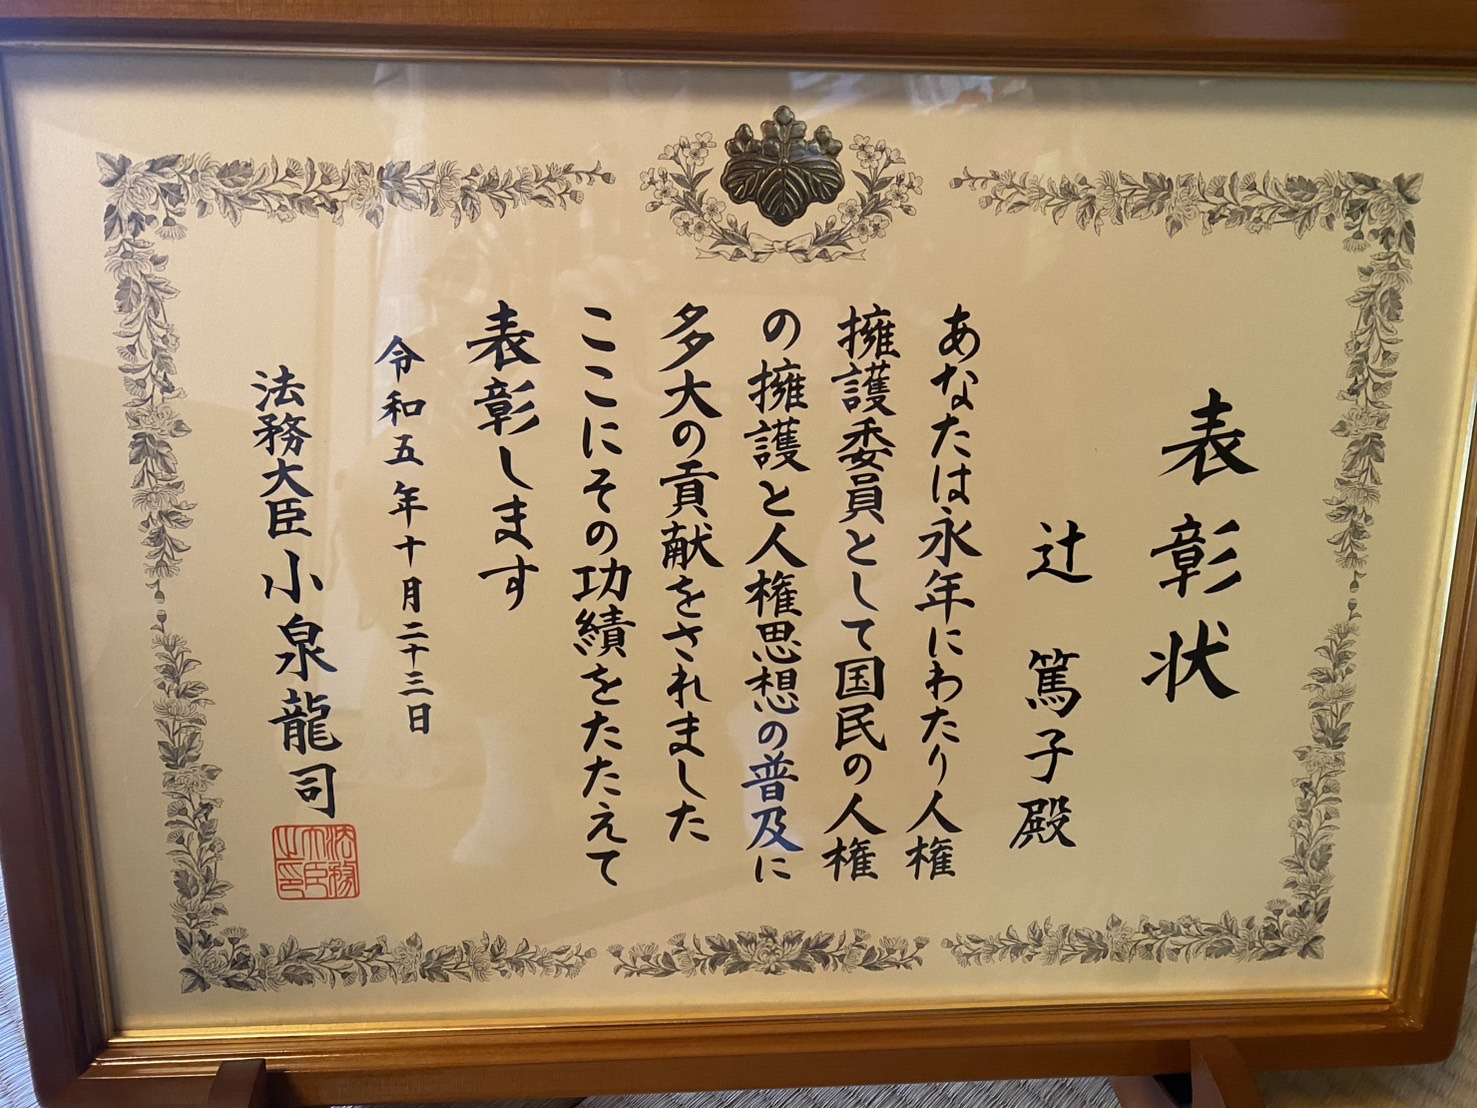 表彰状
辻 篤子殿
あなたは永年にわたり人権
擁護委員として国民の人権
の擁護と人権思想の普及に
多大の貢献をされました
ここにその功績をたたえて
表彰します
令和五年十月二十三日
法務大臣 小泉龍司
法務
大臣
之印